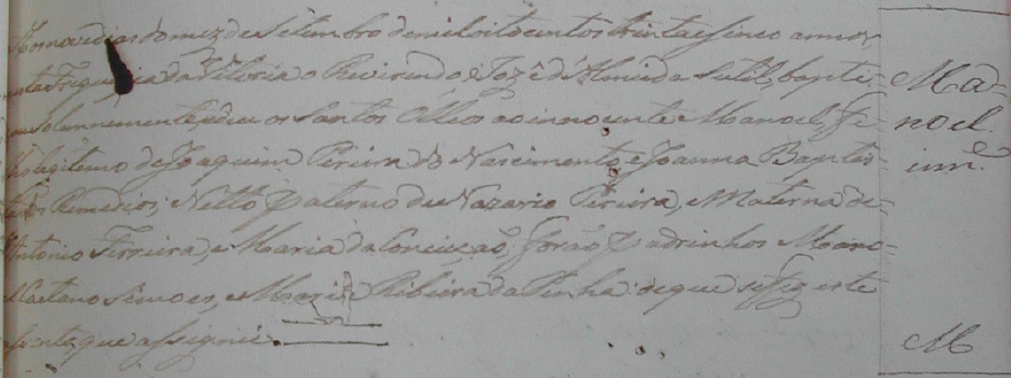 Aos nove dias do mez de Setembro de mil oito centos trinta e sinco annos
nesta Freguezia da Vitoria o Reverendo Jozé d'Almeida Sutil, bapti-
zou solennemente, e deu os Santos Olleos ao innocente Manoel, fi-
lho legitimo de Joaquim Pereira do Nascimento, e Joanna Baptis-
ta dos Remedios; Netto paterno de Nazario Pereira, e Materna de
Antonio Ferreira, e Maria da Conceiçaõ, foraõ Padrinhos
Caetano Simoes, e Maria Ribeira da Penha: de que se fez este
que assignei.
Ma-
noel
inn.e
M